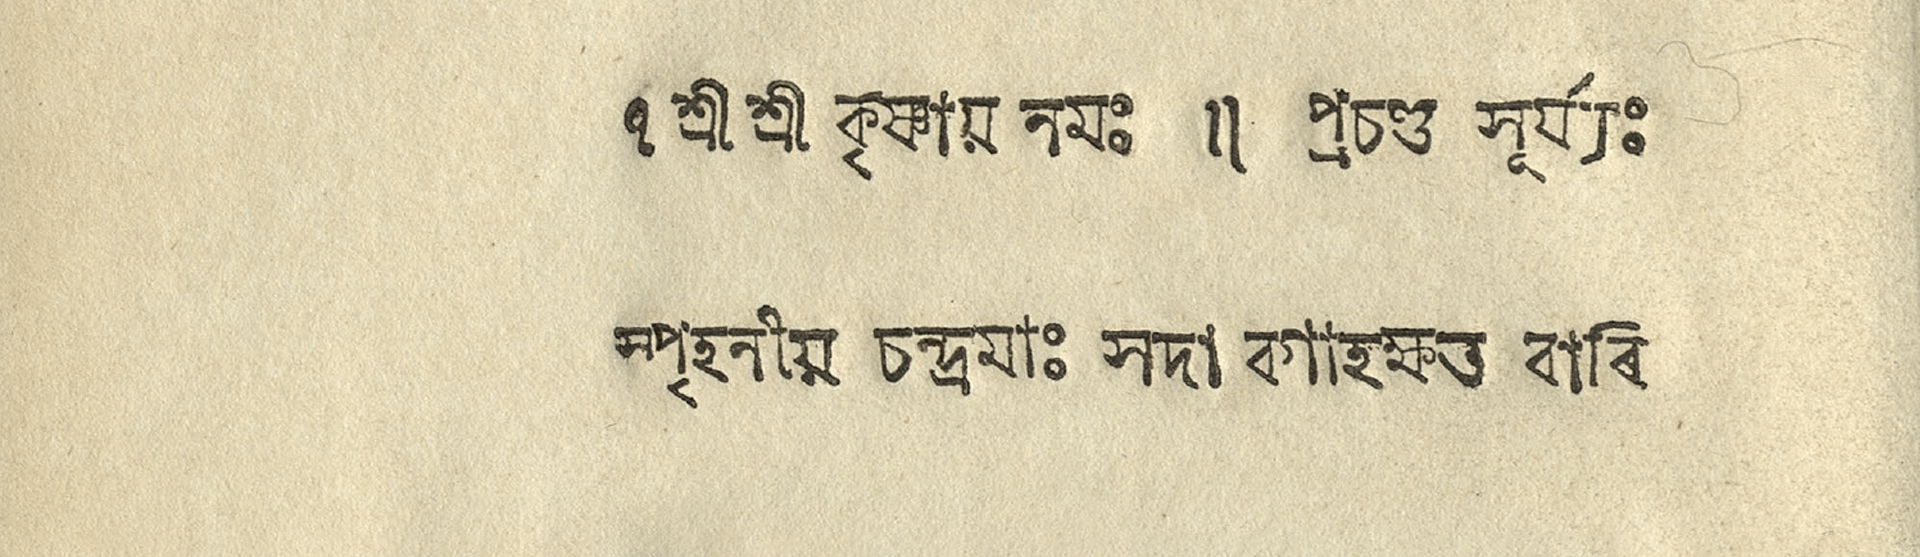 ৭ শ্রী শ্রী কৃষ্ণায় নমঃ ॥ প্রচণ্ড সূর্য্যঃ
স্পৃহনীয় চন্দ্রমাঃ সদা বগাহক্ষত বাৰি